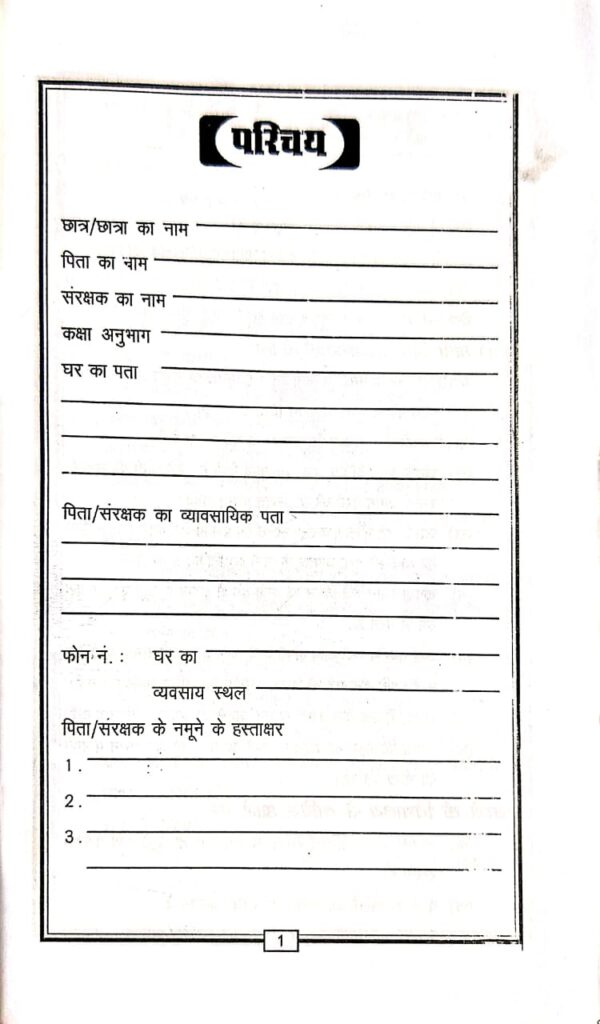 परिचय
छात्र/छात्रा का नाम
पिता का नाम
संरक्षक का नाम
कक्षा अनुभाग
घर का पता
पिता/संरक्षक का व्यावसायिक पता
फोन नं. : घर का
व्यवसाय स्थल
पिता/संरक्षक के नमूने के हस्ताक्षर
1.
2.
3.
1